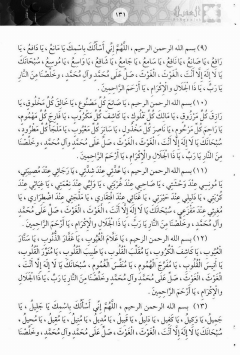 ١٣١
(٩) بسم الله الرحمن الرحيم ، اللَّهُمَّ إِنِّي أَسْأَلُكَ بِاسْمِكَ يَا مَانِعُ ، يَا دَافِعُ ، يَا
رَافِعُ ، يَا صَانِعُ ، يَا نَافِعُ ، يَا سَامِعُ ، يَا جَامِعُ ، يَا شَافِعُ ، يَا وَاسِعُ ، يَا مُوسِعُ ، سُبْحَانَكَ
يَا لَا إِلٰهَ إِلَّا أَنْتَ ، الْغَوْثَ ، الْغَوْثَ ، صَلِّ عَلَى مُحَمَّدٍ وَآلِ مُحَمَّدٍ ، وَخَلِّصْنَا مِنَ النَّارِ
يَا رَبِّ ، يَا ذَا الْجَلَالِ وَالْإِكْرَامِ ، يَا أَرْحَمَ الرَّاحِمِينَ .
(١٠) بسم الله الرحمن الرحيم ، يَا صَانِعَ كُلِّ مَصْنُوعٍ ، يَا خَالِقَ كُلِّ مَخْلُوقٍ ، يَا
رَازِقَ كُلِّ مَرْزُوقٍ ، يَا مَالِكَ كُلِّ مَمْلُوكٍ ، يَا كَاشِفَ كُلِّ مَكْرُوبٍ ، يَا فَارِجَ كُلِّ مَهْمُومٍ ،
يَا رَاحِمَ كُلِّ مَرْحُومٍ ، يَا نَاصِرَ كُلِّ مَخْذُولٍ ، يَا سَاتِرَ كُلِّ مَعْيُوبٍ ، يَا مَلْجَأَ كُلِّ مَطْرُودٍ ،
سُبْحَانَكَ يَا لَا إِلٰهَ إِلَّا أَنْتَ ، الْغَوْثَ ، الْغَوْثَ ، صَلِّ عَلَى مُحَمَّدٍ وَآلِ مُحَمَّدٍ ، وَخَلِّصْنَا
مِنَ النَّارِ يَا رَبِّ ، يَا ذَا الْجَلَالِ وَالْإِكْرَامِ ، يَا أَرْحَمَ الرَّاحِمِينَ .
(١١) بسم الله الرحمن الرحيم ، يَا عُدَّتِي عِنْدَ شِدَّتِي ، يَا رَجَائِي عِنْدَ مُصِيبَتِي ،
يَا مُونِسِي عِنْدَ وَحْشَتِي ، يَا صَاحِبِي عِنْدَ غُرْبَتِي ، يَا وَلِيِّي عِنْدَ نِعْمَتِي ، يَا غِيَاثِي عِنْدَ
كُرْبَتِي ، يَا دَلِيلِي عِنْدَ حَيْرَتِي ، يَا غَنَائِي عِنْدَ افْتِقَارِي ، يَا مَلْجَئِي عِنْدَ اضْطِرَارِي ، يَا
مُعِينِي عِنْدَ مَفْزَعِي ، سُبْحَانَكَ يَا لَا إِلٰهَ إِلَّا أَنْتَ ، الْغَوْثَ ، الْغَوْثَ ، صَلِّ عَلَى مُحَمَّدٍ
وَآلِ مُحَمَّدٍ ، وَخَلِّصْنَا مِنَ النَّارِ يَا رَبِّ ، يَا ذَا الْجَلَالِ وَالْإِكْرَامِ ، يَا أَرْحَمَ الرَّاحِمِينَ .
(١٢) بسم الله الرحمن الرحيم ، يَا عَلَّامَ الْغُيُوبِ ، يَا غَفَّارَ الذُّنُوبِ ، يَا سَتَّارَ
الْعُيُوبِ ، يَا كَاشِفَ الْكُرُوبِ ، يَا مُقَلِّبَ الْقُلُوبِ ، يَا طَبِيبَ الْقُلُوبِ ، يَا مُنَوِّرَ الْقُلُوبِ ، يَا
أَنِيسَ الْقُلُوبِ ، يَا مُفَرِّجَ الْهُمُومِ ، يَا مُنَفِّسَ الْغُمُومِ ، سُبْحَانَكَ يَا لَا إِلٰهَ إِلَّا أَنْتَ ،
الْغَوْثَ ، الْغَوْثَ ، صَلِّ عَلَى مُحَمَّدٍ وَآلِ مُحَمَّدٍ ، وَخَلِّصْنَا مِنَ النَّارِ يَا رَبِّ ، يَا ذَا الْجَلَالِ
وَالْإِكْرَامِ ، يَا أَرْحَمَ الرَّاحِمِينَ .
(١٣) بسم الله الرحمن الرحيم ، اللَّهُمَّ إِنِّي أَسْأَلُكَ بِاسْمِكَ يَا جَلِيلُ ، يَا
جَمِيلُ ، يَا وَكِيلُ ، يَا كَفِيلُ ، يَا دَلِيلُ ، يَا قَبِيلُ ، يَا مُدِيلُ ، يَا مُنِيلُ ، يَا مُقِيلُ ، يَا مُحِيلُ ،
سُبْحَانَكَ يَا لَا إِلٰهَ إِلَّا أَنْتَ ، الْغَوْثَ ، الْغَوْثَ ، صَلِّ عَلَى مُحَمَّدٍ وَآلِ مُحَمَّدٍ ، وَخَلِّصْنَا